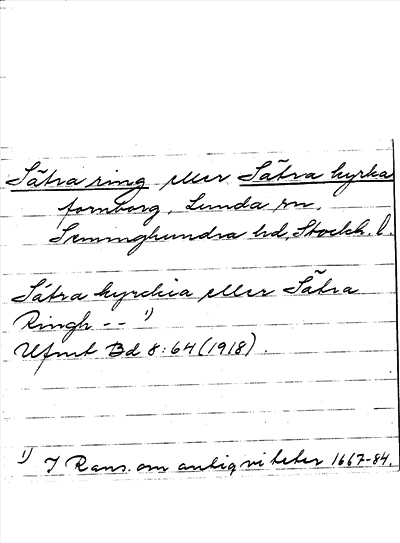 Sätra ring eller Sätra kyrka
fornborg, Lunda sn.
Seminghundra hd, Stockh. l.
Sätra kyrckia eller Sätra
Ringh -- 1)
Ufmt Bd 8:64 (1918).
1) I Rans. om antiqviteter 1667-84.